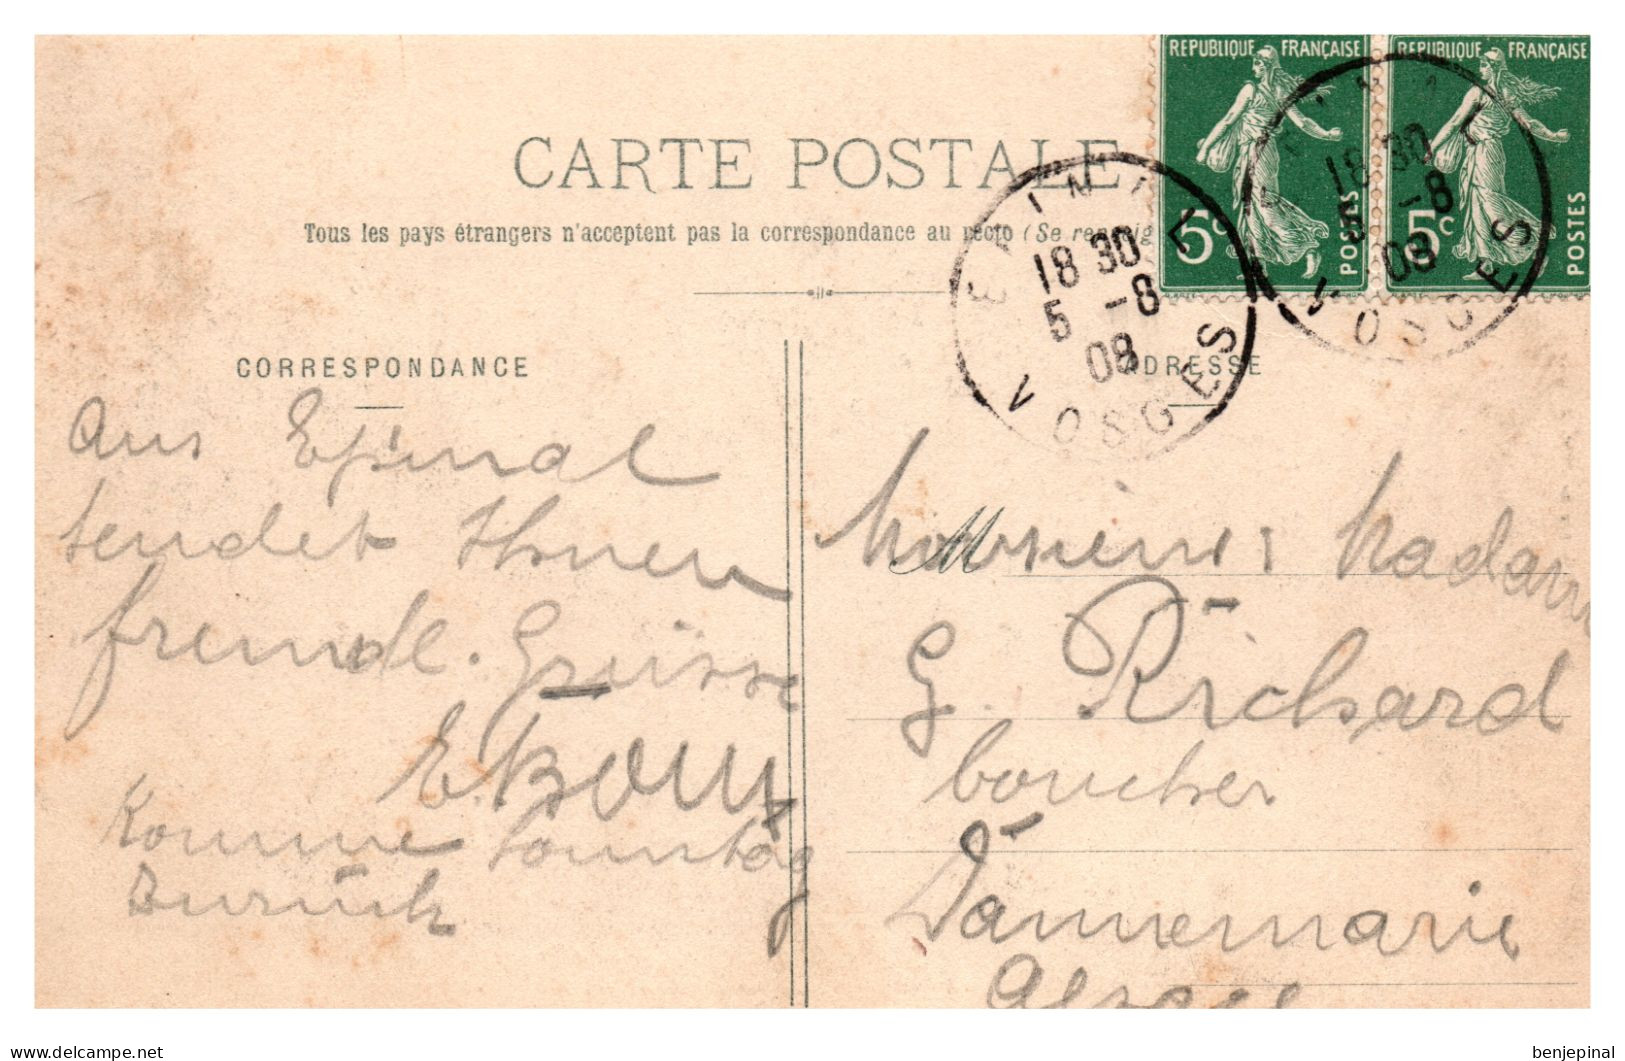 REPUBLIQUE FRANÇAISE
REPUBLIQUE FRANÇAISE
5c POSTES
5c POSTES
EPINAL
18 30
5 -8
08
VOSGES
EPINAL
18 30
5 -8
08
VOSGES
CARTE POSTALE
Tous les pays étrangers n'acceptent pas la correspondance au recto (Se renseig
CORRESPONDANCE
ADRESSE
Aus Epinal
sendet Ihnen
freundl. Grüsse
Komme Sonntag
zurück
M
Monsieur & Madame
G. Richard
boucher
Dannemarie
Alsace
delcampe.net
benjepinal